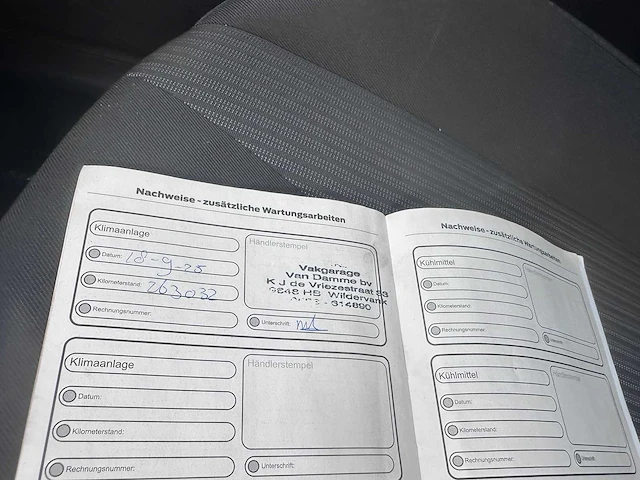 Nachweise - zusätzliche Wartungsarbeiten
Klimaanlage
Datum: 18-9-25
Kilometerstand: 263032
Rechnungsnummer:
Händlerstempel
Vakgarage
Van Damme bv
K J de Vriezestraat 53
9648 HB Wildervank
- 614890
Unterschrift:
Klimaanlage
Datum:
Kilometerstand:
Rechnungsnummer:
Händlerstempel
Unterschrift:
Nachweise - zusätzliche Wartungsarbeiten
Kühlmittel
Datum:
Kilometerstand:
Rechnungsnummer:
Unterschrift:
Kühlmittel
Datum:
Kilometerstand:
Rechnungsnummer:
Händlerstempel
Unterschrift: